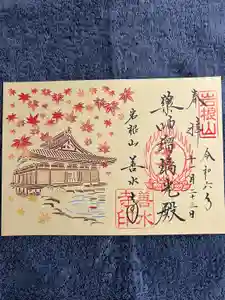 岩根山
奉拝
令和六年
十一月
日
薬師瑠璃光殿
岩根山 善水寺
善水寺印